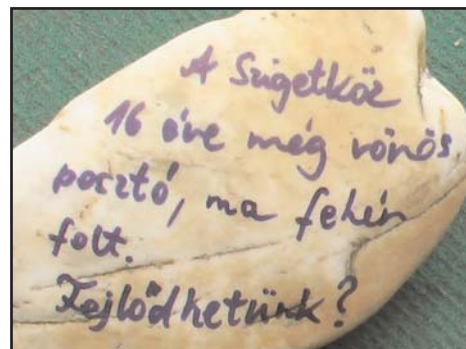 A Szigetköz
16 éve még vörös
posztó, ma fehér
folt.
Fejlődhetünk?